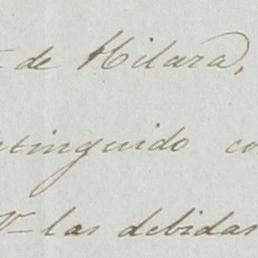 de Milara,
stinguido co
V las debidas